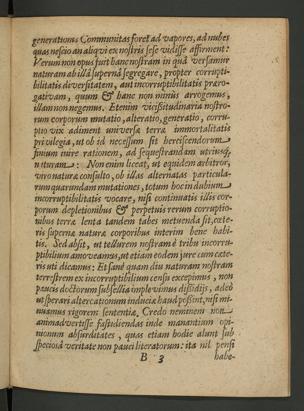 generationis Communitas foret ad vapores, ad nubes
quas nescio an aliqvi ex nostris sese vidisse affirment:
Verum non opus sunt hanc nostram in quâ versamur
naturam ab illâ supernâ segregare, propter corrupti-
bilitatis diversitatem, aut incorruptibilitatis præro-
gativam, quum & hanc non minùs arrogemus,
illam non negemus. Etenim vicissitudinaria nostro-
rum corporum mutatio, alteratio, generatio, corru-
ptio vix adiment universæ terræ immortalitatis
privilegia, ut ob id necessum sit herciscendorum
finium inire rationem, ad sequestrandam utriusq,
naturam: Non enim liceat, ut equidem arbitror,
viro naturæ consulto, ob illas alternatas particula-
rum quarundam mutationes, totum hoc in dubium
incorruptibilitatis vocare, nisi continuatis illis cor-
porum depletionibus & perpetuis rerum corruptio-
nibus terræ lenta tandem tabes metuenda sit, cæte-
ris supernæ naturæ corporibus interim bene habi-
tis. Sed absit, ut tellurem nostram è tribu incorru-
ptibilium amoveamus, ut etiam eodem jure cum cæte-
ris uti dicamus: Et sanè quum diu naturam nostram
terrestrem ex incorruptibilium censu excepimus, non
paucis doctorum subsellia implevimus dissidijs, adeò
ut sperari altercationum induciæ haud possint, nisi mi-
nuamus rigorem sententiæ. Credo neminem non
animadvertisse fastidiendas inde manantium opi-
nionum absurditates, quas etiam hodie alunt sub
speciosâ veritate non pauci literatorum: ita nil pensi
B 3 habe-